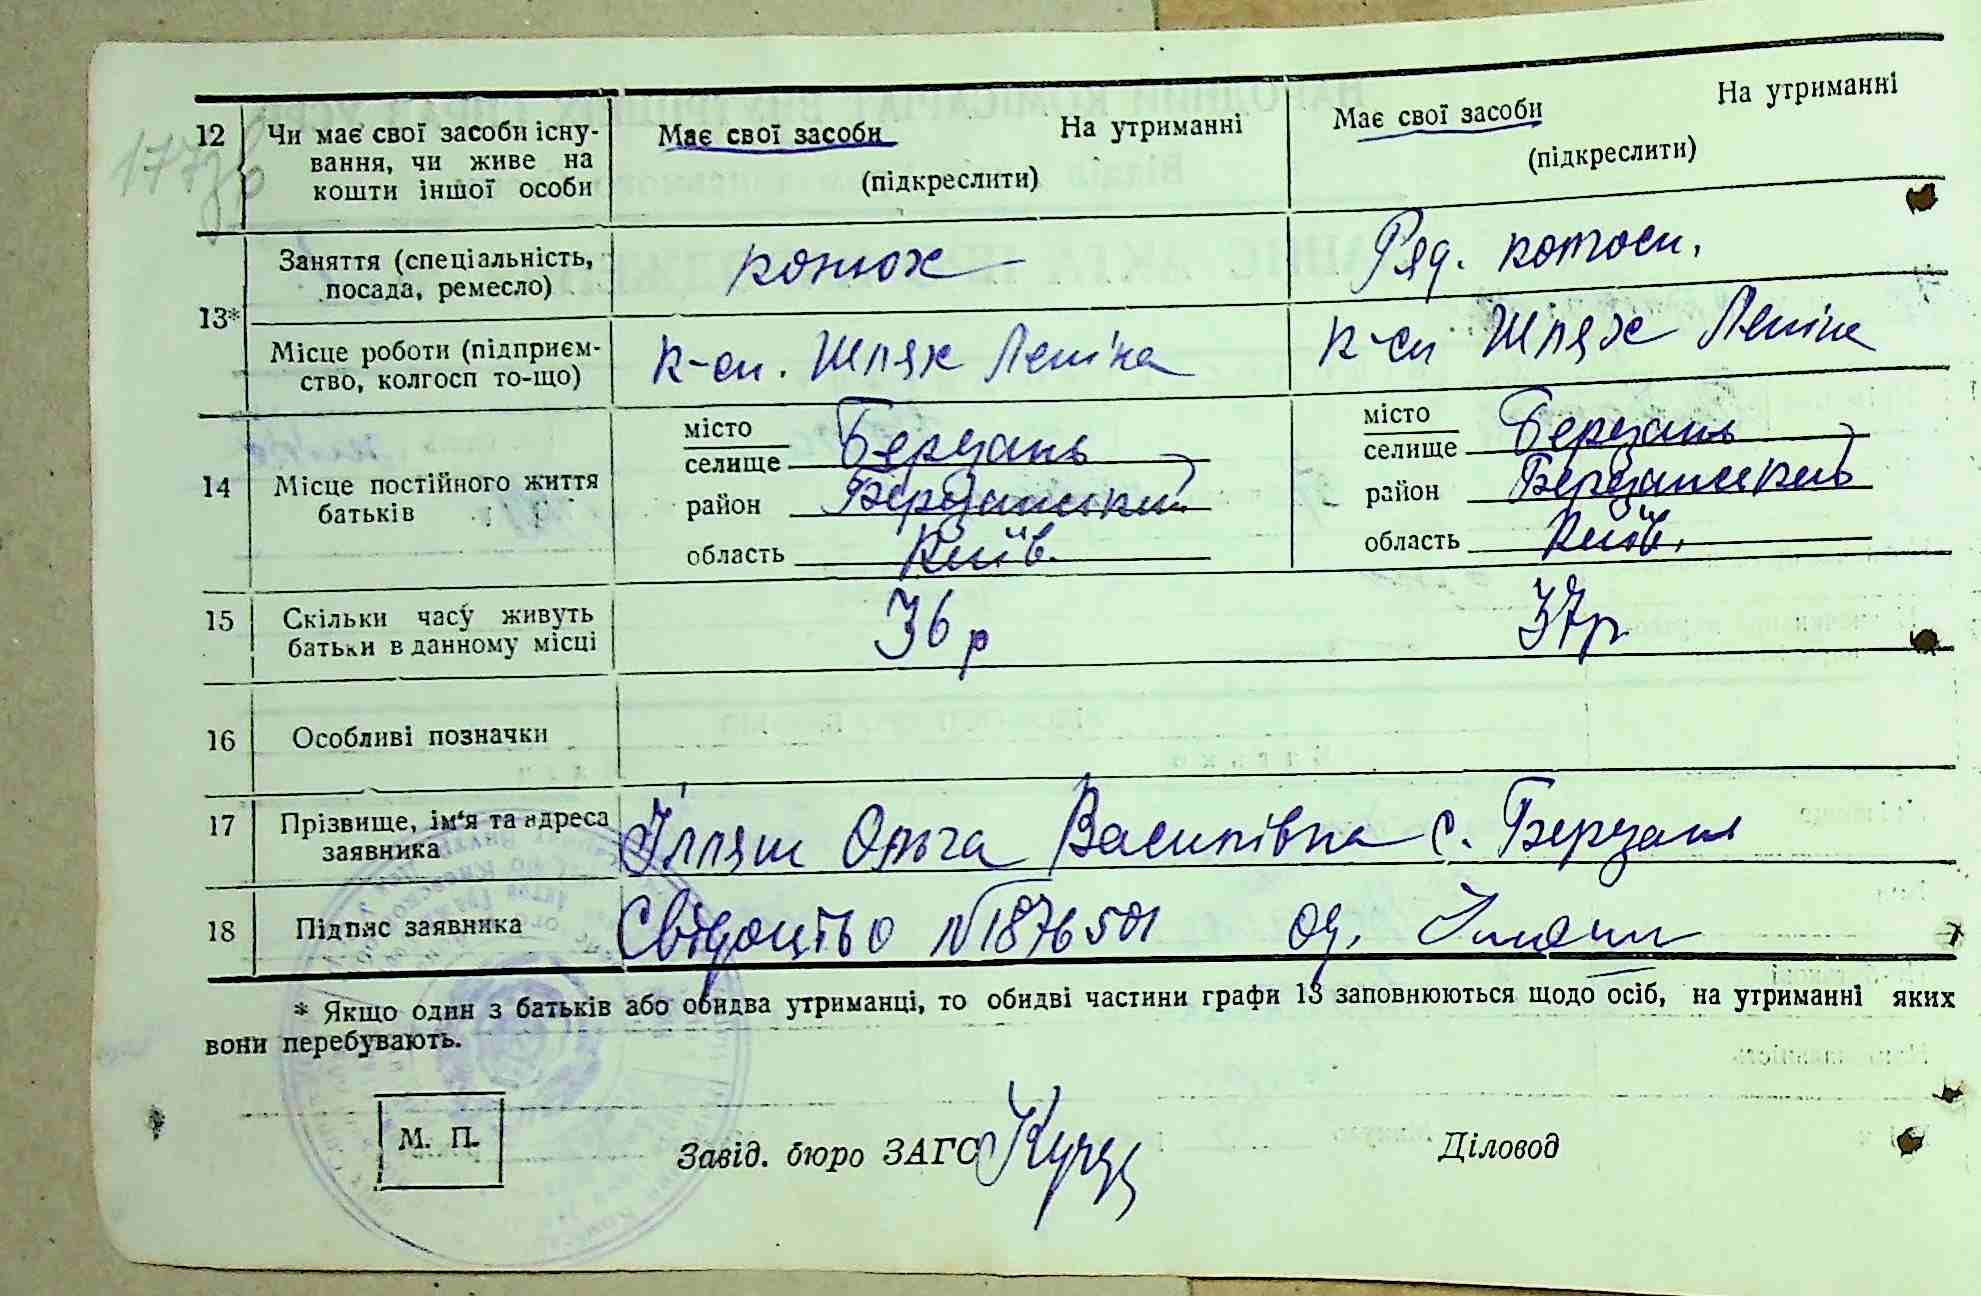 177зв
12 Чи має свої засоби існу- Має свої засоби На утриманні Має свої засоби На утриманні
вання, чи живе на (підкреслити) (підкреслити)
кошти іншої особи
13* Заняття (спеціальність, конюх Ряд. колгосп.
посада, ремесло)
Місце роботи (підприєм- К-сп. Шлях Леніна К-сп Шлях Леніна
ство, колгосп то-що)
14 Місце постійного життя батьків
місто селище Березань місто селище Березань
район Березанський район Березанський
область Київ. область Київ.
15 Скільки часу живуть 36 р 37р
батьки в данному місці
16 Особливі позначки
17 Прізвище, ім'я та адреса Ілляш Ольга Василівна с. Березань
заявника
18 Підпис заявника Свідоцтво №1876501
* Якщо один з батьків або обидва утриманці, то обидві частини графи 13 заповнюються щодо осіб, на утриманні яких
вони перебувають.
М. П.
Завід. бюро ЗАГС Діловод